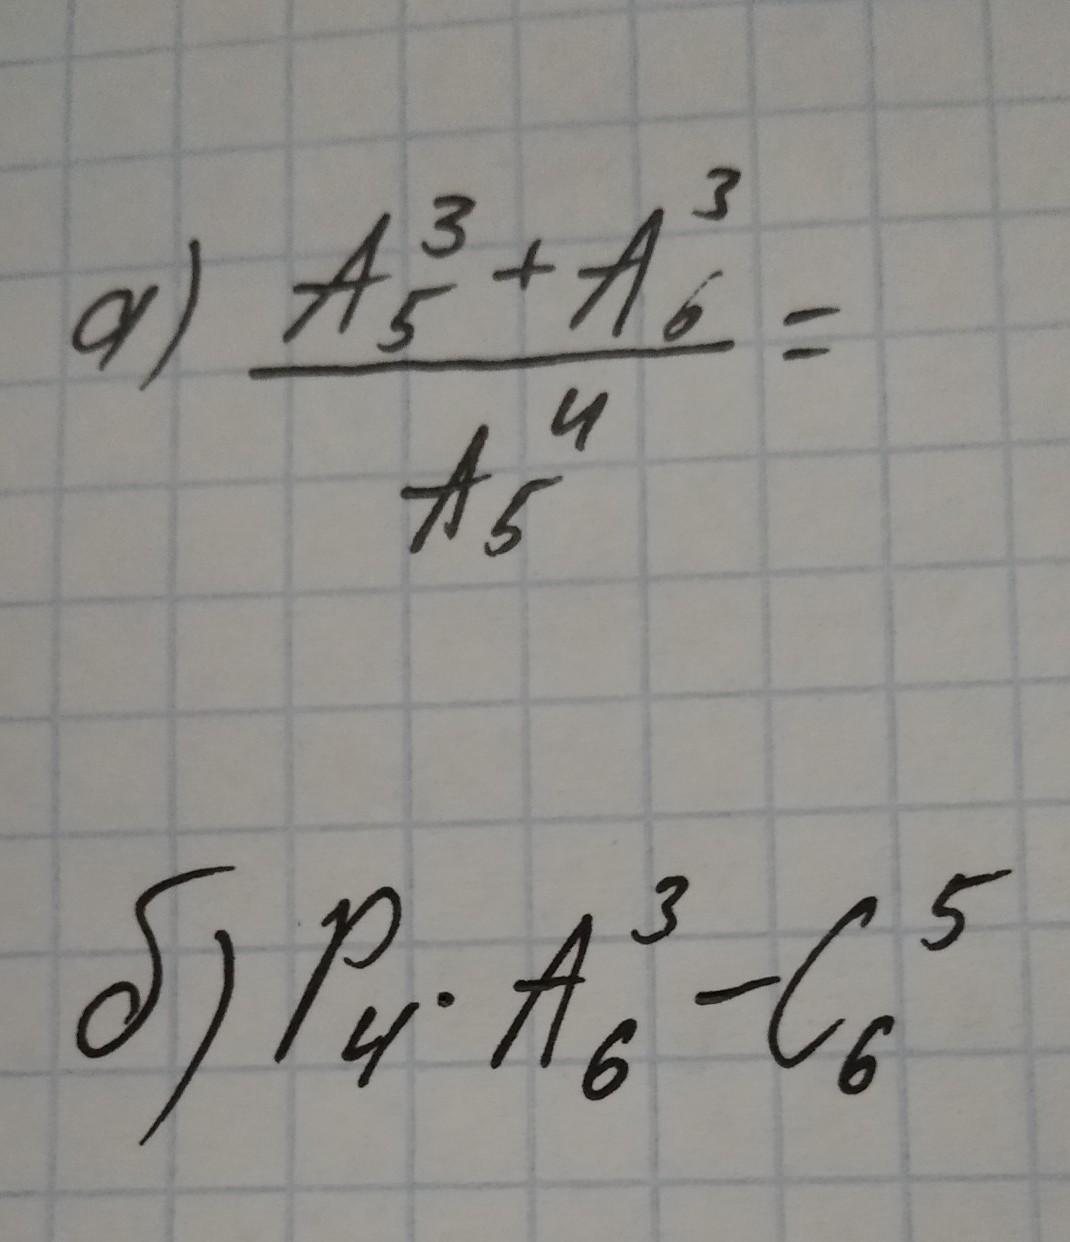 а) A₅³ + A₆³ =
A₅⁴
б) P₄ · A₆³ – C₆⁵